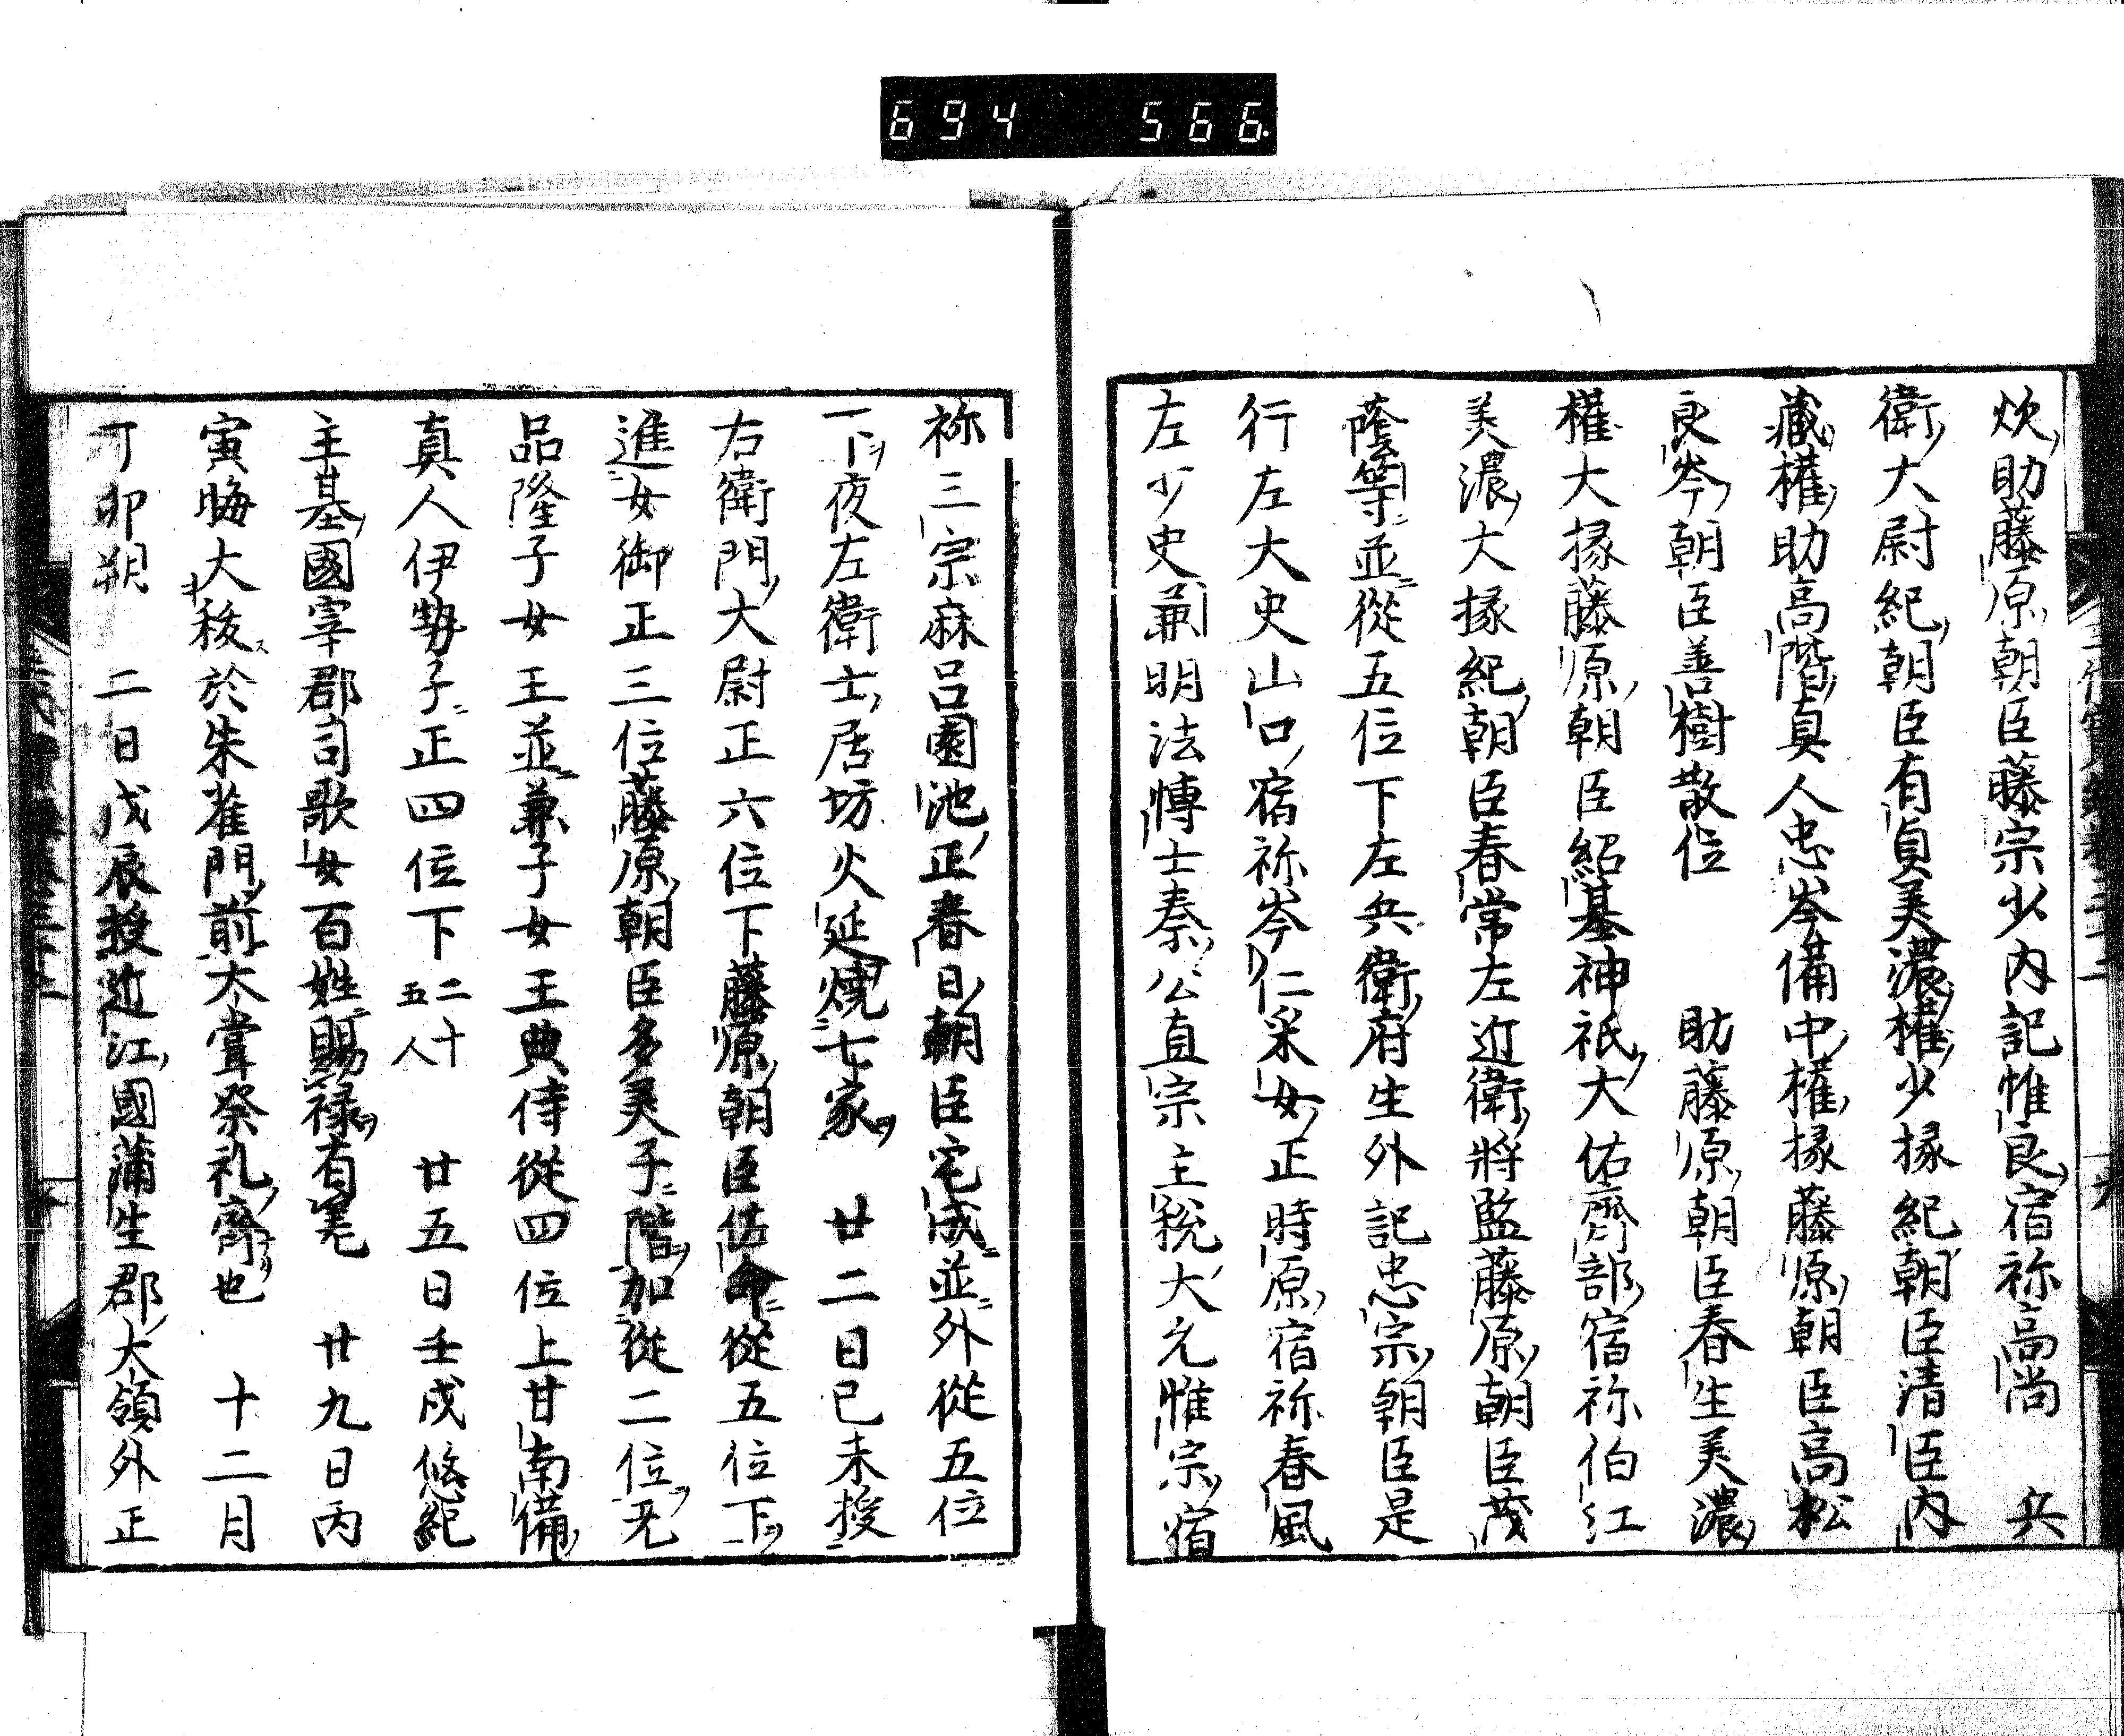 694 566
炊助藤原朝臣藤宗少内記惟良宿祢高尚　兵
衛大尉紀朝臣有貞美濃權少掾紀朝臣清臣内
藏權助高階真人忠岑備中權掾藤原朝臣高松
良岑朝臣善樹散位　　助藤原朝臣春生美濃
權大掾藤原朝臣紹基神祇大佑齊部宿祢伯江
美濃大掾紀朝臣春常左近衛將監藤原朝臣茂
蔭等並從五位下左兵衛府生外記忠宗朝臣是
行左大史山口宿祢岑仁采女正時原宿祢春風
左少史兼明法博士秦公直宗主税大允惟宗宿
祢三宗麻呂園池正春日朝臣宅成並外從五位
下夜左衛士居坊火延燒七家　廿二日己未授
右衛門大尉正六位下藤原朝臣佐命從五位下
進女御正三位藤原朝臣多美子階加從二位无
品隆子女王並兼子女王典侍從四位上甘南備
真人伊勢子正四位下二十五人　廿五日壬戌悠紀
主基國宰郡司歌女百姓賜禄有差　廿九日丙
寅晦大祓於朱雀門前大嘗祭礼齊也　十二月
丁卯朔　二日戊辰授近江國蒲生郡大領外正